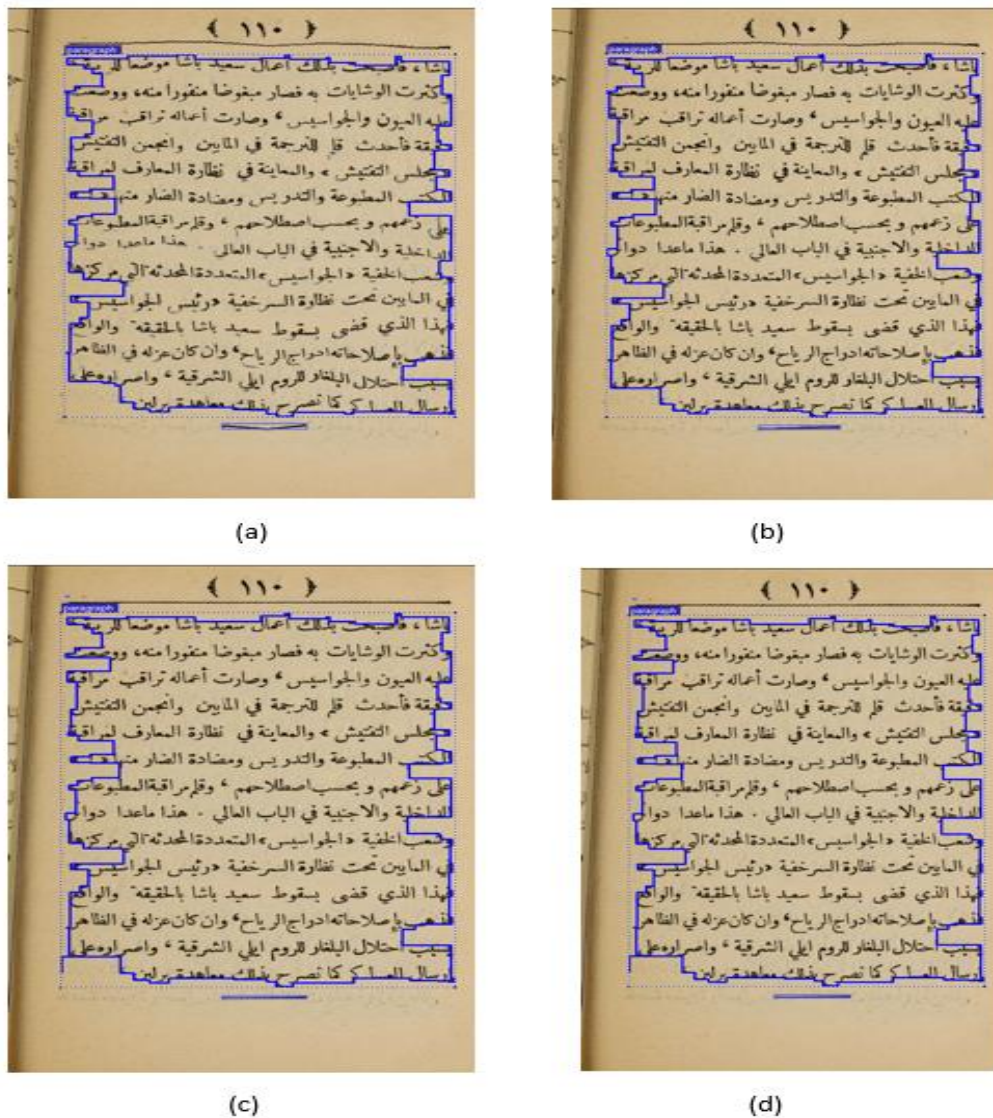 ﴿ ١١٠ ﴾
paragraph
باشا ، فأصبحت بذلك أعمال سعيد باشا موضعا للريبة
وكثرت الوشايات به فصار مبغوضا منفورا منه، ووضعت
عليه العيون والجواسيس ، وصارت أعماله تراقب مراقبة
دقيقة فأحدث قلم للترجمة في المابين وانجمن التفتيش
مجلس التفتيش » والمعاينة في نظارة المعارف لمراقبة
الكتب المطبوعة والتدريس ومضادة الضار منها
على زعمهم وبحسب اصطلاحهم ، وقلم مراقبة المطبوعات
الداخلية والاجنبية في الباب العالي . هذا ماعدا دوائر
وشعب الخفية «الجواسيس» المتعددة المحدثة التي مركزها
في المابين تحت نظارة السرخفية «رئيس الجواسيس
فهذا الذي قضى بسقوط سعيد باشا بالحقيقة والواقع
فذهب بإصلاحاته ادراج الرياح، وان كان عزله في الظاهر
بسبب احتلال البلغار للروم ايلي الشرقية ، واصراره على
ارسال العساكر كما تصرح بذلك معاهدة برلين
(a)
﴿ ١١٠ ﴾
paragraph
باشا ، فأصبحت بذلك أعمال سعيد باشا موضعا للريبة
وكثرت الوشايات به فصار مبغوضا منفورا منه، ووضعت
عليه العيون والجواسيس ، وصارت أعماله تراقب مراقبة
دقيقة فأحدث قلم للترجمة في المابين وانجمن التفتيش
مجلس التفتيش » والمعاينة في نظارة المعارف لمراقبة
الكتب المطبوعة والتدريس ومضادة الضار منها
على زعمهم وبحسب اصطلاحهم ، وقلم مراقبة المطبوعات
الداخلية والاجنبية في الباب العالي . هذا ماعدا دوائر
وشعب الخفية «الجواسيس» المتعددة المحدثة التي مركزها
في المابين تحت نظارة السرخفية «رئيس الجواسيس
فهذا الذي قضى بسقوط سعيد باشا بالحقيقة والواقع
فذهب بإصلاحاته ادراج الرياح، وان كان عزله في الظاهر
بسبب احتلال البلغار للروم ايلي الشرقية ، واصراره على
ارسال العساكر كما تصرح بذلك معاهدة برلين
(b)
﴿ ١١٠ ﴾
paragraph
باشا ، فأصبحت بذلك أعمال سعيد باشا موضعا للريبة
وكثرت الوشايات به فصار مبغوضا منفورا منه، ووضعت
عليه العيون والجواسيس ، وصارت أعماله تراقب مراقبة
دقيقة فأحدث قلم للترجمة في المابين وانجمن التفتيش
مجلس التفتيش » والمعاينة في نظارة المعارف لمراقبة
الكتب المطبوعة والتدريس ومضادة الضار منها
على زعمهم وبحسب اصطلاحهم ، وقلم مراقبة المطبوعات
الداخلية والاجنبية في الباب العالي . هذا ماعدا دوائر
وشعب الخفية «الجواسيس» المتعددة المحدثة التي مركزها
في المابين تحت نظارة السرخفية «رئيس الجواسيس
فهذا الذي قضى بسقوط سعيد باشا بالحقيقة والواقع
فذهب بإصلاحاته ادراج الرياح، وان كان عزله في الظاهر
بسبب احتلال البلغار للروم ايلي الشرقية ، واصراره على
ارسال العساكر كما تصرح بذلك معاهدة برلين
(c)
﴿ ١١٠ ﴾
paragraph
باشا ، فأصبحت بذلك أعمال سعيد باشا موضعا للريبة
وكثرت الوشايات به فصار مبغوضا منفورا منه، ووضعت
عليه العيون والجواسيس ، وصارت أعماله تراقب مراقبة
دقيقة فأحدث قلم للترجمة في المابين وانجمن التفتيش
مجلس التفتيش » والمعاينة في نظارة المعارف لمراقبة
الكتب المطبوعة والتدريس ومضادة الضار منها
على زعمهم وبحسب اصطلاحهم ، وقلم مراقبة المطبوعات
الداخلية والاجنبية في الباب العالي . هذا ماعدا دوائر
وشعب الخفية «الجواسيس» المتعددة المحدثة التي مركزها
في المابين تحت نظارة السرخفية «رئيس الجواسيس
فهذا الذي قضى بسقوط سعيد باشا بالحقيقة والواقع
فذهب بإصلاحاته ادراج الرياح، وان كان عزله في الظاهر
بسبب احتلال البلغار للروم ايلي الشرقية ، واصراره على
ارسال العساكر كما تصرح بذلك معاهدة برلين
(d)